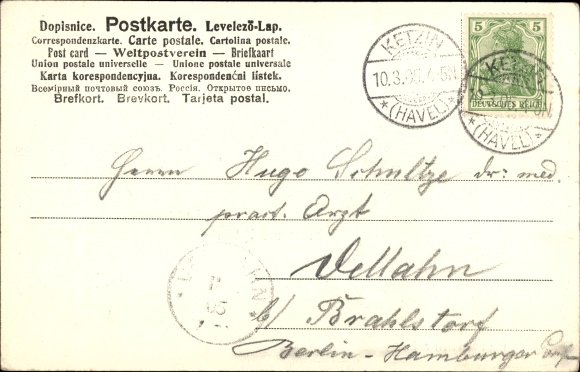 Dopisnice. Postkarte. Levelező-Lap.
Correspondenzkarte. Carte postale. Cartolina postale.
Post card — Weltpostverein — Briefkaart
Union postale universelle — Unione postale universale
Karta korespondencyjna. Korespondenční lístek.
Всемірный почтовый союзъ. Россія. Открытое письмо.
Brefkort. Brevkort. Tarjeta postal.
KETZIN
4-5N
*(HAVEL)*
5 5
DEUTSCHES REICH
KETZIN
*(HAVEL)*
Herrn Hugo Schultze dr: med.
pract. Arzt
Vellahn
b/ Brahlstorf
Berlin-Hamburger